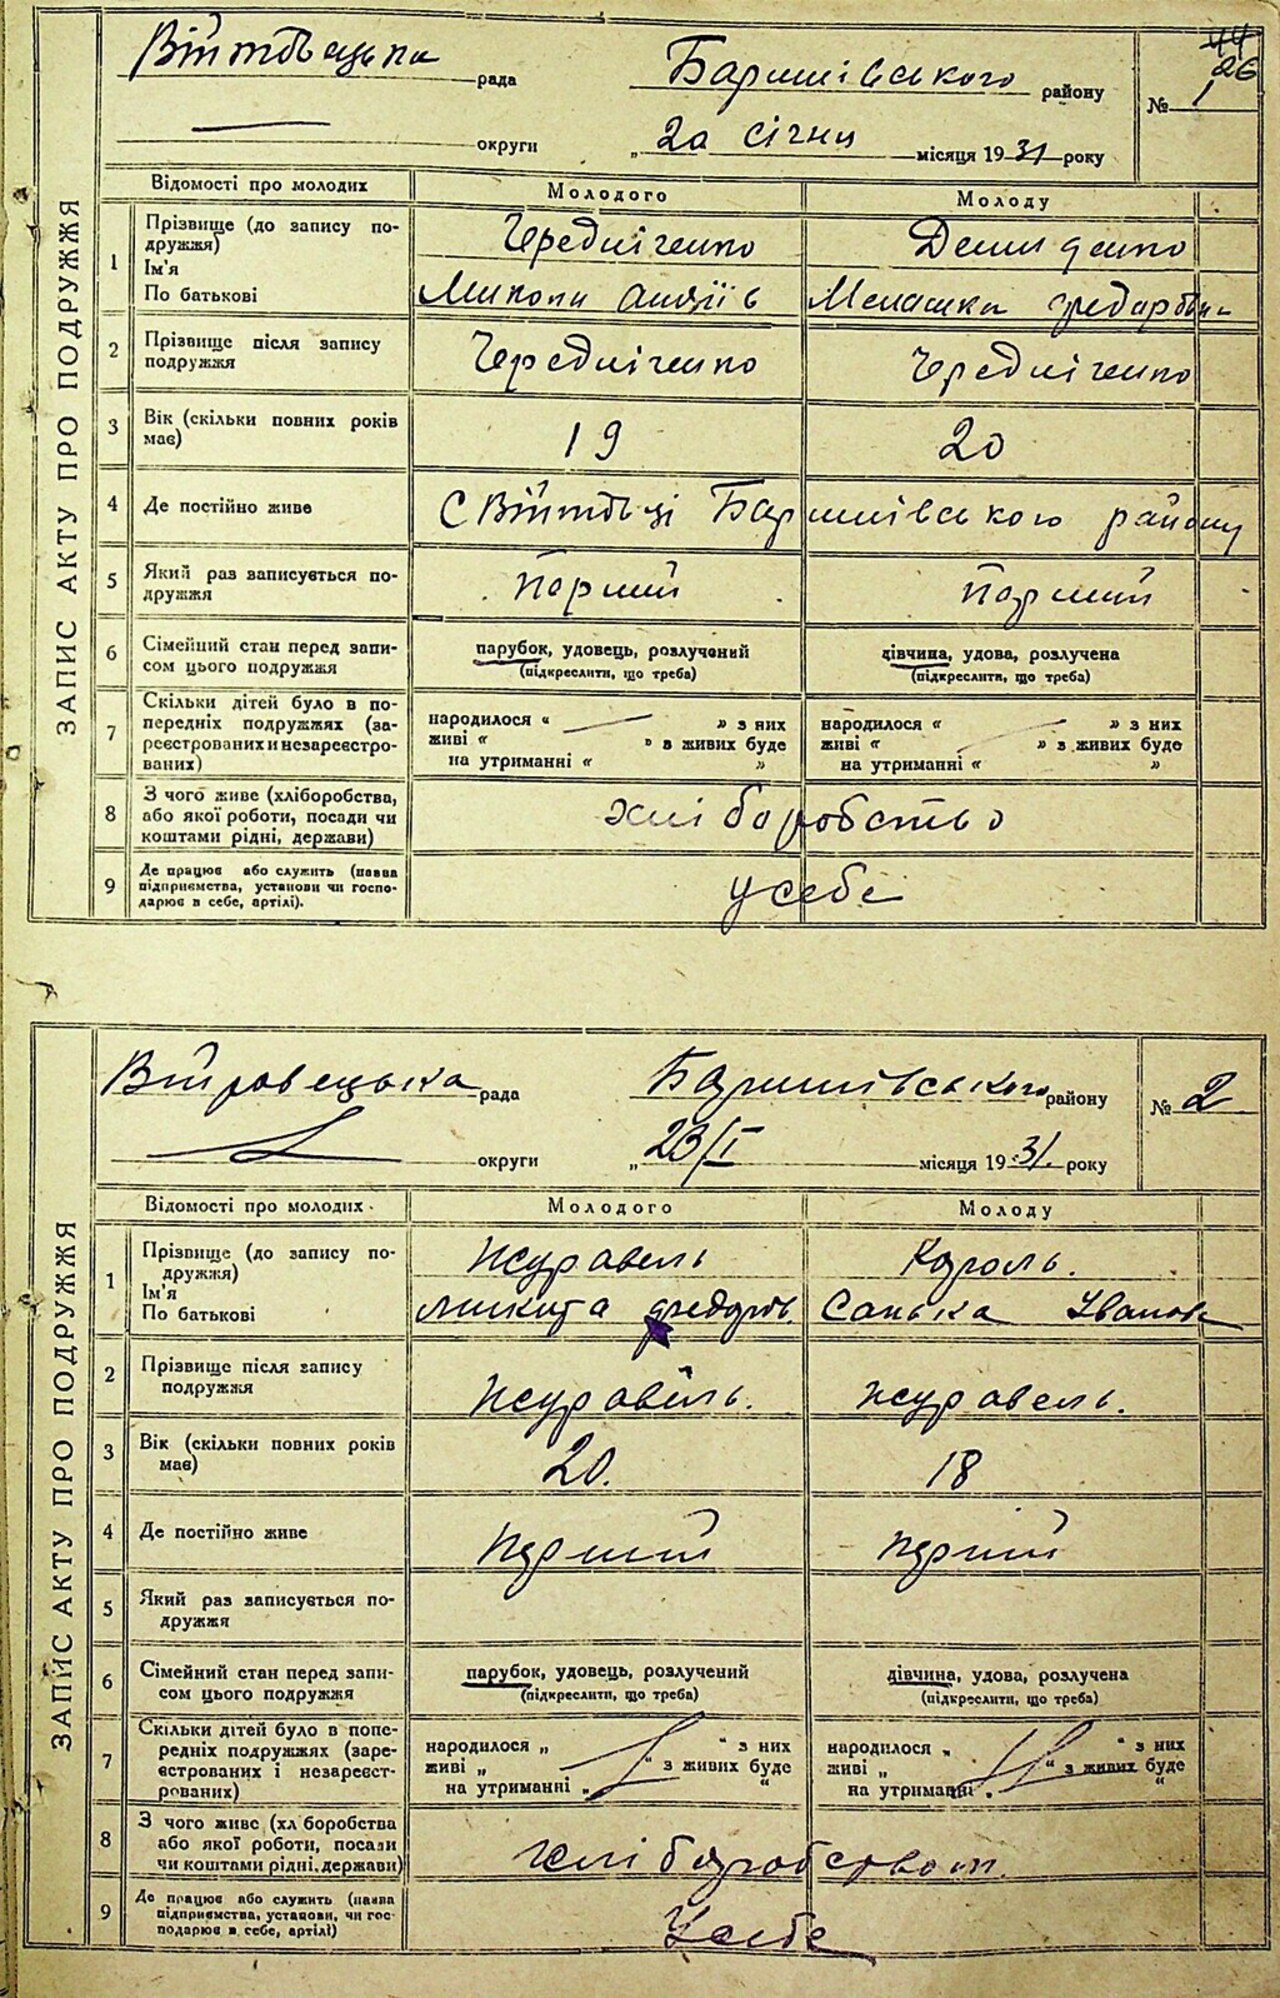 44
26
Війтовецька рада Баришівського району № 1
округи „ 20 січня місяця 1931 року
ЗАПИС АКТУ ПРО ПОДРУЖЖЯ
Відомості про молодих Молодого Молоду
1 Прізвище (до запису по-
дружжя) Чередніченко Демиденко
Ім'я
По батькові Микола Андріїв Мелашка Федорівна
2 Прізвище після запису
подружжя Чередніченко Чередніченко
3 Вік (скільки повних років
має) 19 20
4 Де постійно живе С Війтовці Баришівського району
5 Який раз записується по-
дружжя Перший Перший
6 Сімейний стан перед запи-
сом цього подружжя
парубок, удовець, розлучений дівчина, удова, розлучена
(підкреслити, що треба) (підкреслити, що треба)
7 Скільки дітей було в по-
передніх подружжях (за-
реєстрованих и незареєстро-
ваних)
народилося “ » з них народилося “ » з них
живі “ » в живих буде живі “ » з живих буде
на утриманні “ » на утриманні “ »
8 З чого живе (хліборобства,
або якої роботи, посади чи
коштами рідні, держави) хліборобство
9 Де працює або служить (назва
підприємства, установи чи госпо-
дарює в себе, артілі). у себе
Війтовецька рада Баришівського району № 2
округи „ 23/I місяця 1931. року
ЗАПИС АКТУ ПРО ПОДРУЖЖЯ
Відомості про молодих Молодого Молоду
1 Прізвище (до запису по-
дружжя) Журавель Король.
Ім'я
По батькові Микита Федоров. Санька Іванов
2 Прізвище після запису
подружжя Журавель. Журавель.
3 Вік (скільки повних років
має) 20. 18
4 Де постійно живе перший перший
5 Який раз записується по-
дружжя
6 Сімейний стан перед запи-
сом цього подружжя
парубок, удовець, розлучений дівчина, удова, розлучена
(підкреслити, що треба) (підкреслити, що треба)
7 Скільки дітей було в попе-
редніх подружжях (заре-
єстрованих і незареєст-
рованих)
народилося „ “ з них народилося „ “ з них
живі „ “ з живих буде живі „ “ з живих буде
на утриманні „ “ на утриманні „ “
8 З чого живе (хл боробства
або якої роботи, посади
чи коштами рідні, держави) хліборобством.
9 Де працює або служить (назва
підприємства, установи, чи гос-
подарює в себе, артілі) У себе